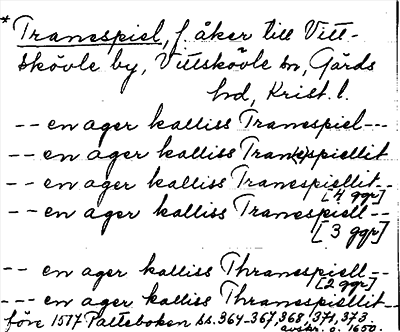 * Tranespiel, f. åker till Vitt-
skövle by, Vittskövle sn, Gärds
hd, Krist. l.
-- en ager kalliss Tranespiel --
-- en ager kalliss Tranespiellit
-- en ager kalliss Tranespiellit --
[4 ggr]
-- en ager kalliss Tranespiell --
[3 ggr]
-- en ager kalliss Thranespiell --
[2 ggr]
--- en ager kalliss Thranespiellit --
före 1577 Palteboken ss. 364-367, 368, 371, 373.
avskr. o. 1650.